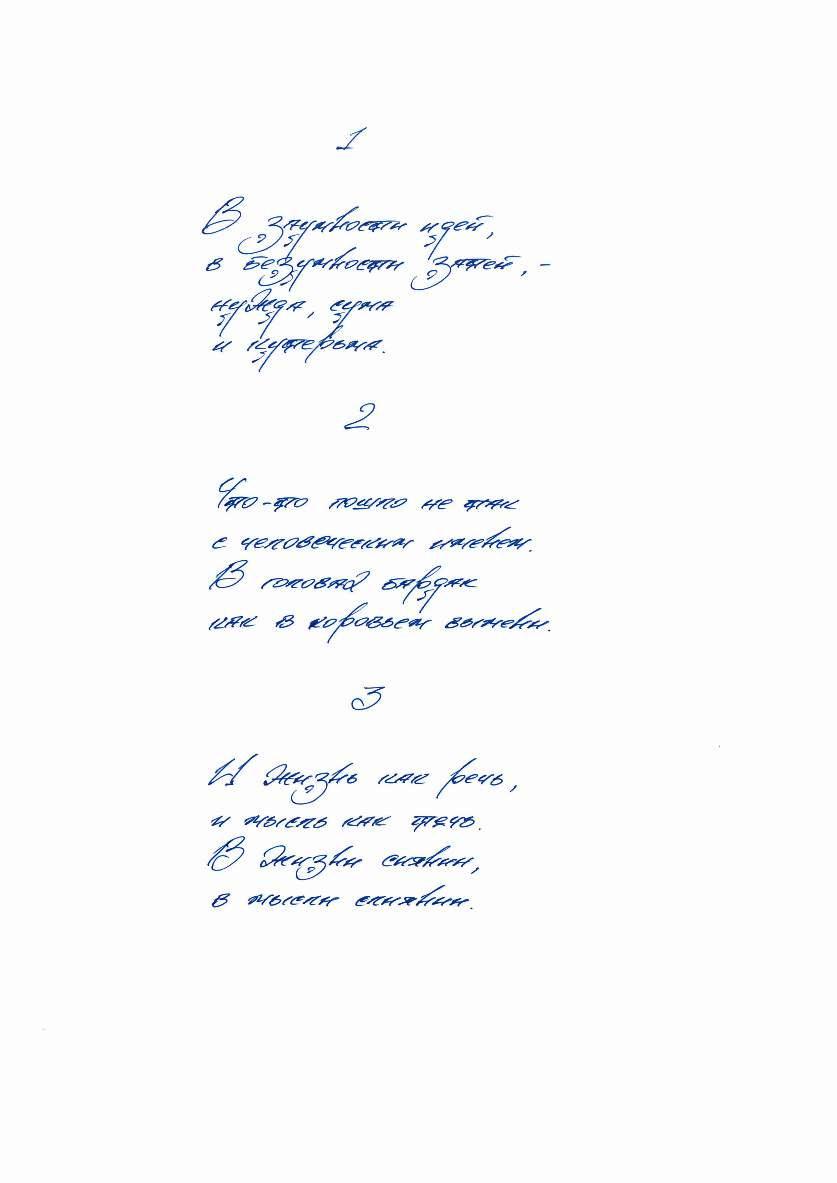 1
В заумности идей,
в безумности затей, -
нужда, сума
и кутерьма.
2
Что-то пошло не так
с человеческим именем.
В головах бардак
как в коровьем вымени.
3
И жизнь как речь,
и мысль как течь.
В жизни сиянии,
в мысли слиянии.